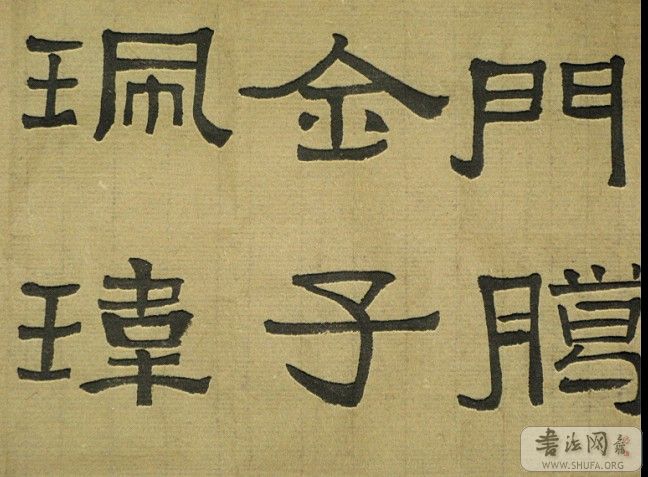 門
金子
珮瑋
書法网
WWW.SHUFA.ORG